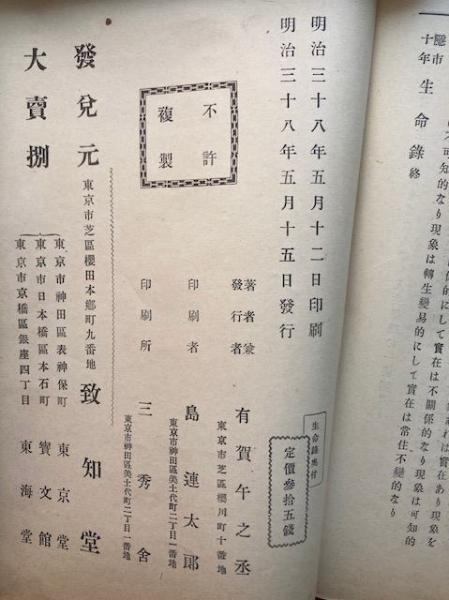 可知的なり現象は轉生變易的にして實在は常住不變的なり
的にして實在は不關係的なり現象は可知的
れば實在あり現象を
隱市十年 生命錄 終
生命錄奧付
定價參拾五錢
明治三十八年五月十二日印刷
明治三十八年五月十五日發行
不許複製
著者兼發行者 有賀午之丞
東京市芝區櫻川町十番地
印刷者 島連太郎
東京市神田區美土代町二丁目一番地
印刷所 三秀舍
東京市神田區美土代町二丁目一番地
發兌元 東京市芝區櫻田本鄕町九番地 致知堂
大賣捌
東京市神田區表神保町 東京堂
東京市日本橋區本石町 寶文館
東京市京橋區銀座四丁目 東海堂